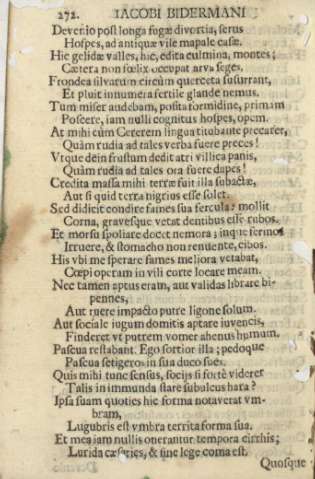 272. IACOBI BIDERMANI
Deverio post longa fugæ divortia, serus
Hospes, ad antiquæ vile mapale casæ.
Hic gelidæ valles, hic, edita culmina, montes;
Cætera non fœlix occupat arva seges.
Frondea silvarum circùm querceta susurrant,
Et pluit innumera fertile glande nemus.
Tum miser audebam, posita formidine, primùm
Poscere, iam nulli cognitus hospes, opem.
At mihi cùm Cererem lingua titubante precarer,
Quàm rudia ad tales verba fuere preces!
Vtque dein frustum dedit atri villica panis,
Quàm rudia ad tales ora fuere dapes!
Credita massa mihi terræ fuit illa subactæ,
Aut si quid terra nigrius esse solet.
Sed didicit condire fames sua fercula: mollit
Corna, gravesque vetat dentibus esse rubos.
Et morsu spoliare docet nemora; inque ferinos
Irruere, & stomacho non renuente, cibos.
His vbi me sperare fames meliora vetabat,
Cœpi operam in vili corte locare meam.
Nec tamen aptus eram, aut validas librare bi-
pennes,
Aut ruere impacto putre ligone solum.
Aut sociale iugum domitis aptare iuvencis,
Finderet vt putrem vomer ahenus humum.
Pascua restabant. Ego sortior illa; pedoque
Pascua setigeros in sua duco sues.
Quis mihi tunc sensus, socijs si fortè videret
Talis in immunda stare subulcus hara?
Ipsa suam quoties hic forma notaverat vm-
bram,
Lugubris est vmbra territa forma sua.
Et mea iam nullis onerantur tempora cirrhis;
Lurida cæsaries, & sine lege coma est.
Quosque